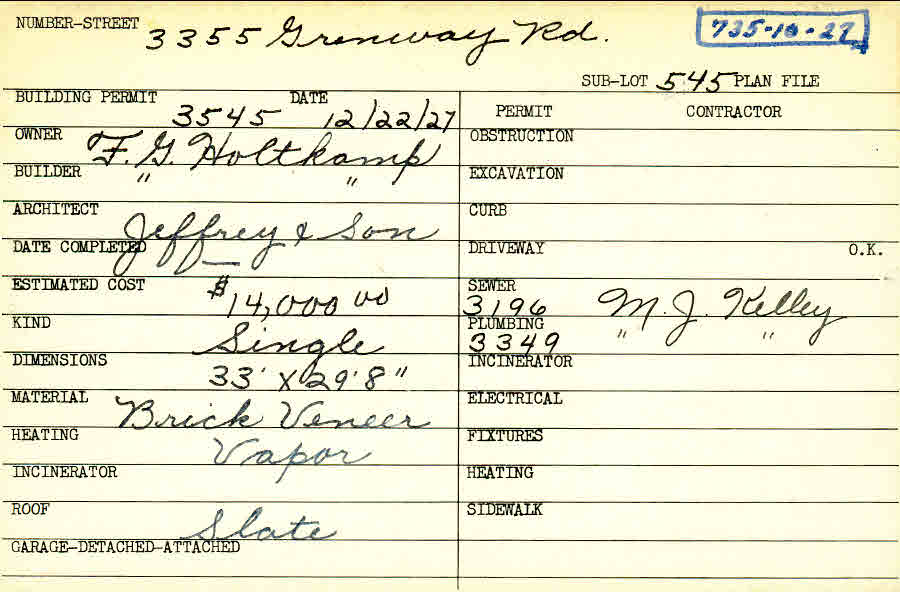 NUMBER-STREET 3355 Grenway Rd. 735-10-27
SUB-LOT 545 PLAN FILE
BUILDING PERMIT 3545 DATE 12/22/27
PERMIT CONTRACTOR
OWNER F. G. Holtkamp
OBSTRUCTION
BUILDER " "
EXCAVATION
ARCHITECT Jeffrey & Son
CURB
DATE COMPLETED —
DRIVEWAY O.K.
ESTIMATED COST $14,000 00
SEWER 3196 M. J. Kelley
KIND Single
PLUMBING 3349 " "
DIMENSIONS 33' X 29'8"
INCINERATOR
MATERIAL Brick Veneer
ELECTRICAL
HEATING Vapor
FIXTURES
INCINERATOR
HEATING
ROOF Slate
SIDEWALK
GARAGE-DETACHED-ATTACHED